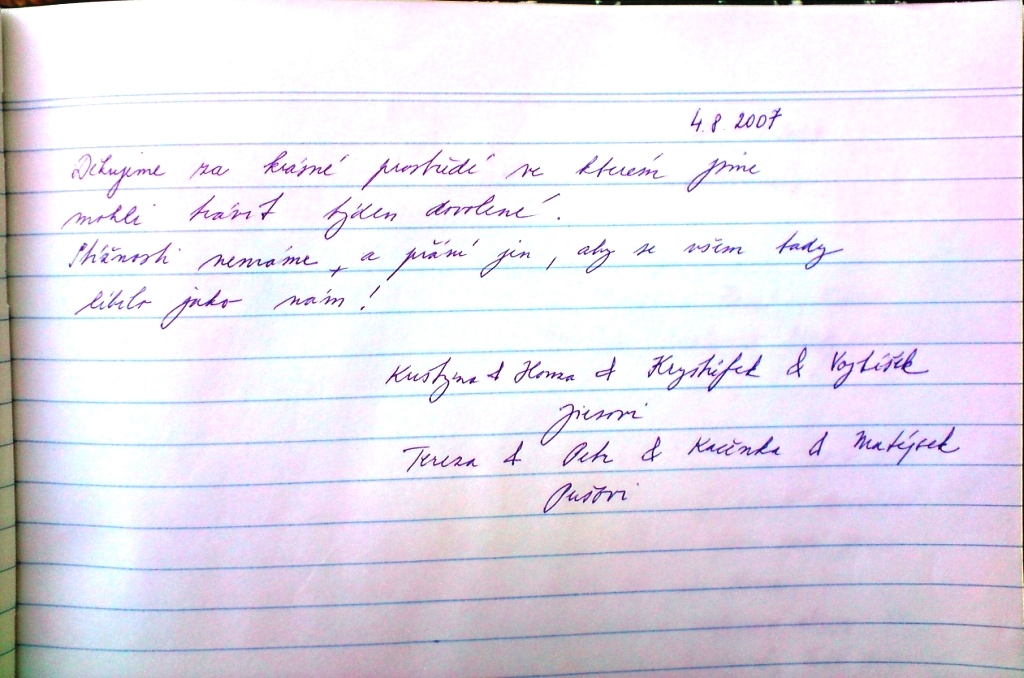 4.8.2007
Děkujeme za krásné prostředí ve kterém jsme
mohli trávit týden dovolené.
Stížnosti nemáme, a přání jen, aby se všem tady
líbilo jako nám!
Kristýna & Honza & Kryštůfek & Vojtíšek
Jiesovi
Tereza & Petr & Kačenka & Matýsek